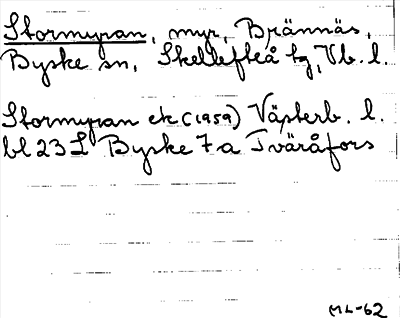 Stormyran, myr, Brännäs,
Byske sn, Skellefteå tg, Vb. l.
Stormyran ek (1959) Västerb. l.
bl 23 L Byske 7a Tväråfors
ML-62